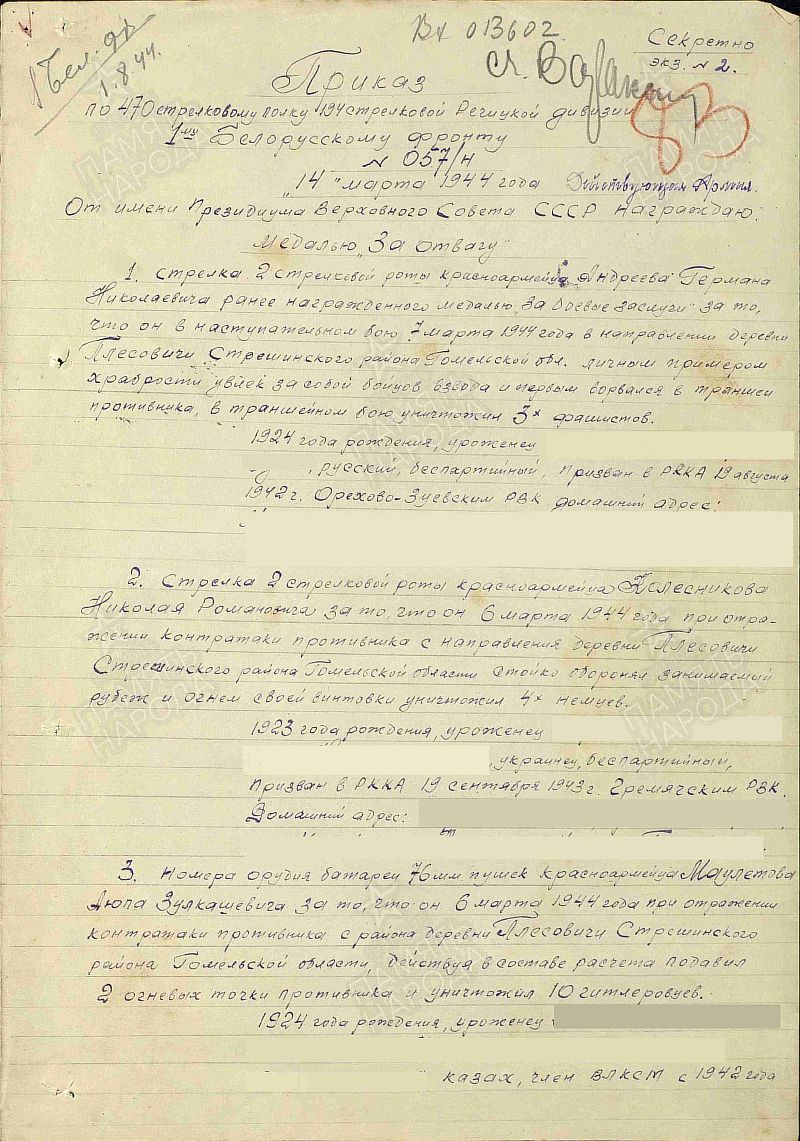 Вх 013602.
Секретно
экз. № 2.
1 Бел. Ф
1.8.44.
83
Приказ
по 470 стрелковому полку 194 стрелковой Речицкой дивизии
1му Белорусскому фронту
№ 057/н
"14" марта 1944 года Действующая Армия.
От имени Президиума Верховного Совета СССР награждаю:
Медалью "За отвагу"
1. Стрелка 2 стрелковой роты красноармейца Андреева Германа
Николаевича ранее награжденного медалью "За боевые заслуги" за то,
что он в наступательном бою 7 марта 1944 года в направлении деревни
Плесовичи Стрешинского района Гомельской обл. личным примером
храбрости увлек за собой бойцов взвода и первым ворвался в траншеи
противника, в траншейном бою уничтожил 3х фашистов.
1924 года рождения, уроженец
, русский, беспартийный, призван в РККА 19 августа
1942 г. Орехово-Зуевским РВК домашний адрес:
2. Стрелка 2 стрелковой роты красноармейца Колесникова
Николая Романовича за то, что он 6 марта 1944 года при отра-
жении контратаки противника с направления деревни Плесовичи
Стрешинского района Гомельской области стойко оборонял занимаемый
рубеж и огнем своей винтовки уничтожил 4х немцев.
1923 года рождения, уроженец
, украинец, беспартийный,
призван в РККА 19 сентября 1943 г. Гремячским РВК.
Домашний адрес:
3. Номера орудия батареи 76 мм пушек красноармейца Маулетова
Аюпа Зулкашевича за то, что он 6 марта 1944 года при отражении
контратаки противника с района деревни Плесовичи Стрешинского
района Гомельской области, действуя в составе расчета подавил
2 огневых точки противника и уничтожил 10 гитлеровцев.
1924 года рождения, уроженец
казах, член ВЛКСМ с 1942 года
ПАМЯТЬ
НАРОДА